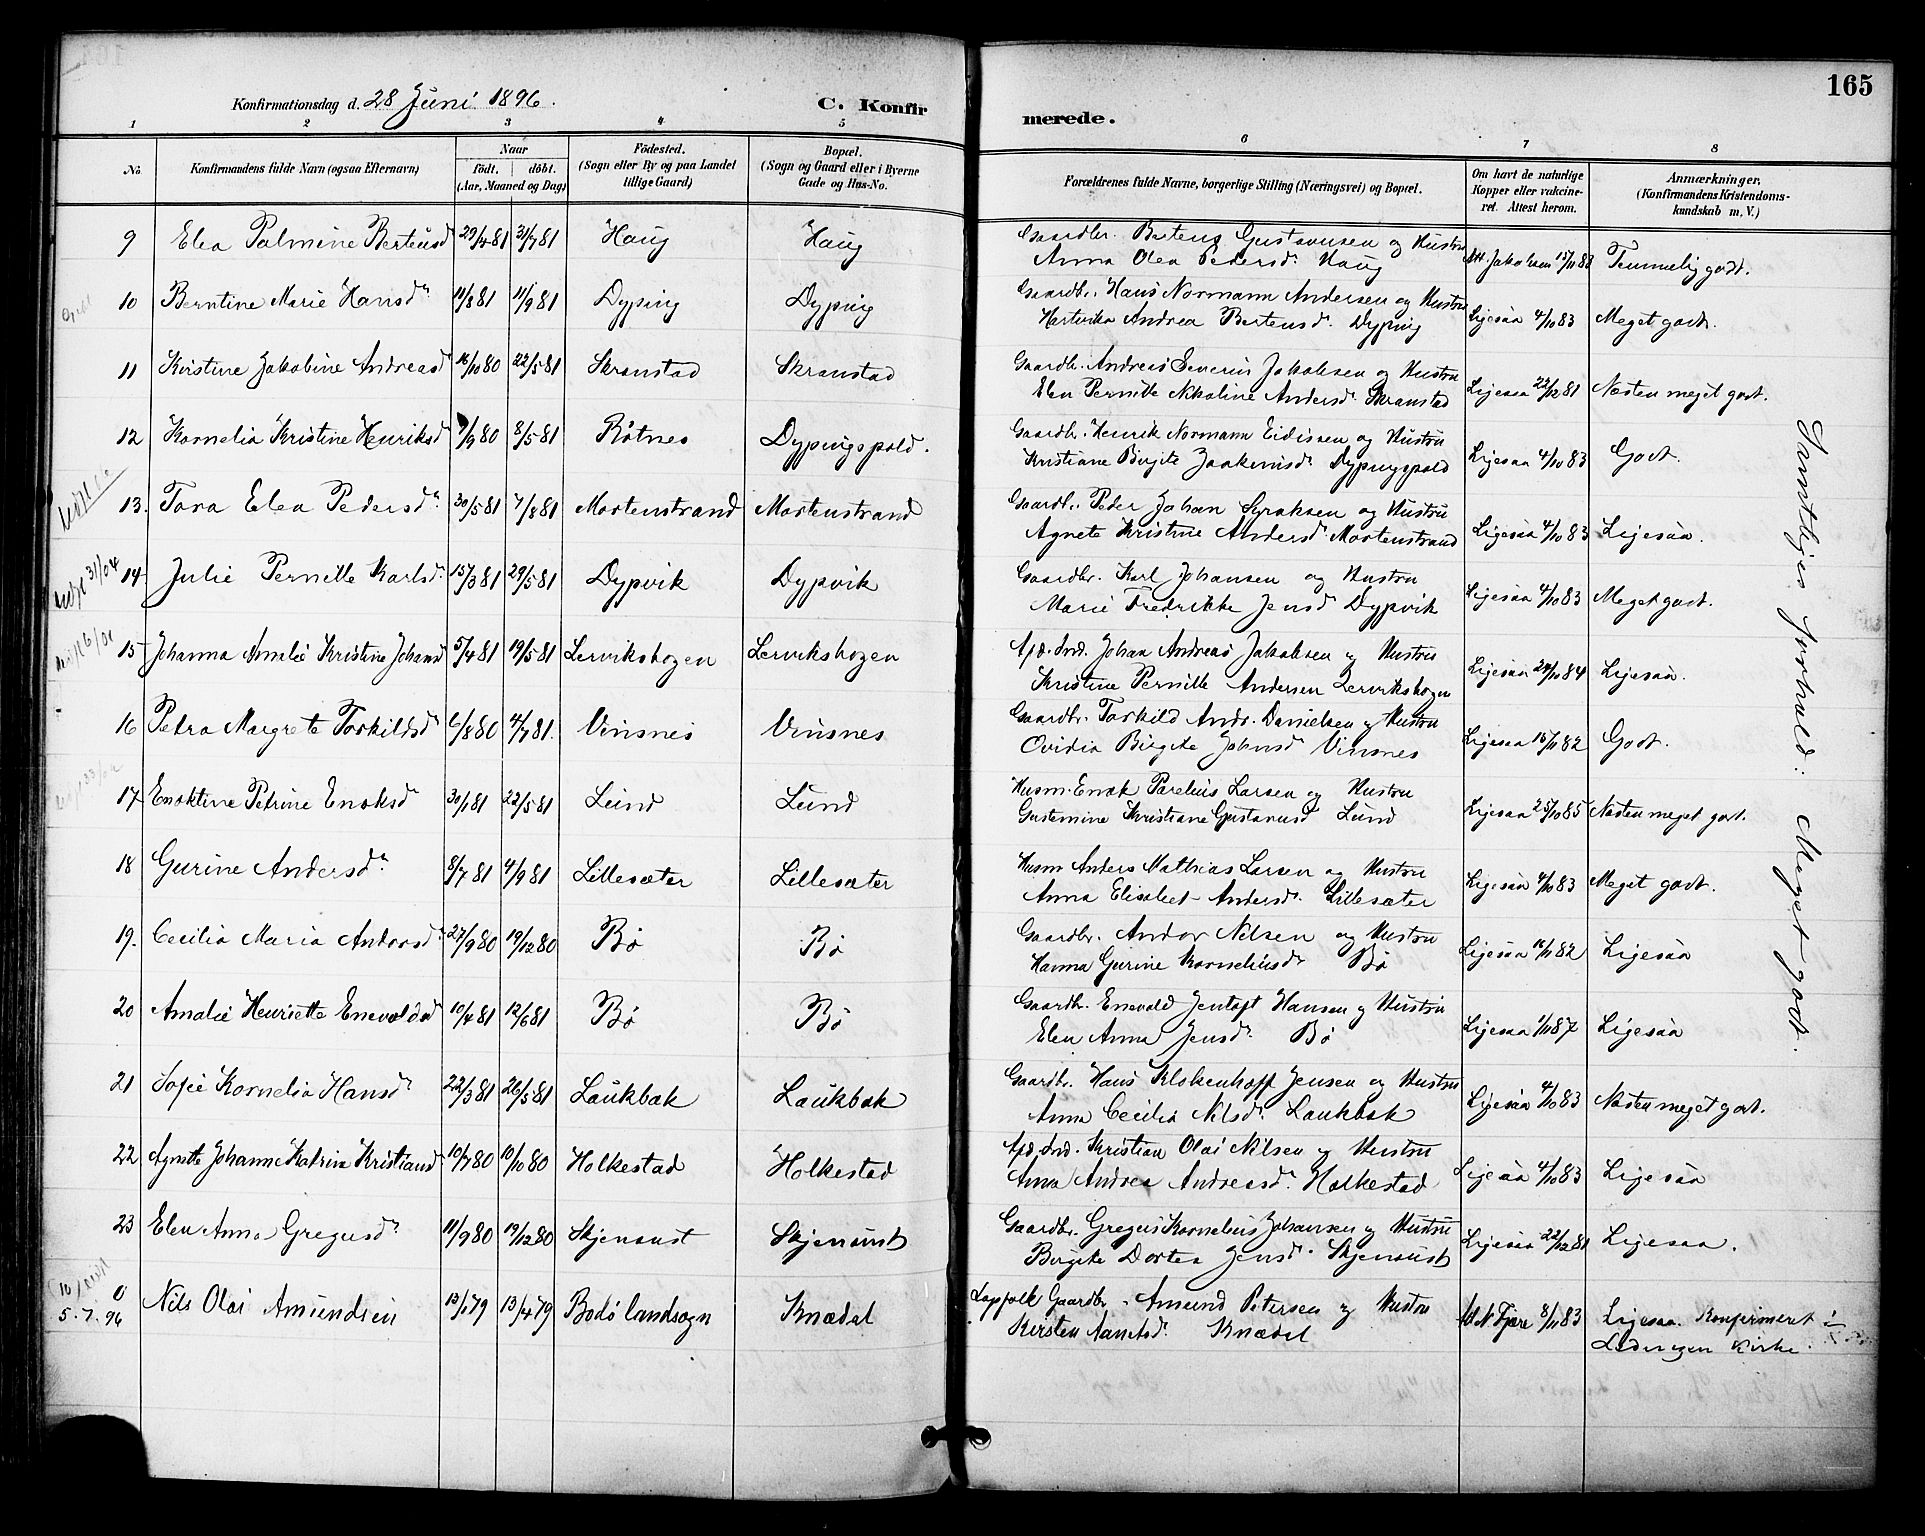 165
Konfirmationsdag d. 28 Juni 1896.
C. Konfirmerede.
1 2 3 4 5 6 7 8
No. Konfirmandens fulde Navn (ogsaa Efternavn) Naar født. døbt. (Aar, Maaned og Dag) Fødested. (Sogn eller By og paa Landet tillige Gaard) Bopæl. (Sogn og Gaard eller i Byerne Gade og Hus-No. Forældrenes fulde Navne, borgerlige Stilling (Næringsvei) og Bopæl. Om havt de naturlige Kopper eller vakcineret. Attest herom. Anmærkninger. (Konfirmandens Kristendomskundskab m. V.)
9 Elea Palmine Berteusd 29/4 81 31/7 81 Haug Haug Gaardbr. Berteus Gustavusen og Hustru
Anna Olea Pedersdr. Haug Att. Jakobsen Temmelig godt.
10 Berntine Marie Hansdr 11/8 81 11/9 81 Dyping Dyping Gaardbr. Hans Normann Andersen og Hustru
Hartvika Andrea Bertensdr. Dyping Ligesaa 4/10 83 Meget godt.
11 Kristine Jakobine Andreasd 16/10 80 22/5 81 Skranstad Skranstad Gaardbr. Andreas Severin Jakobsen og Hustru
Elen Pernille Nikoline Andersdr. Skranstad Ligesaa 22/12 81 Næsten meget godt.
12 Kornelia Kristine Henriksd 7/9 80 8/5 81 Røtnes Dypingspold. Gaardbr. Henrik Normann Eidissen og Hustru
Kristiane Birgite Dypingspold Ligesaa 4/10 83 Godt.
13. Tora Elea Pedersdr 30/5 81 7/8 81 Mortenstrand Mortenstrand Gaardbr. Peder Johan Syraksen og Hustru
Agnete Kristine Andersdr. Mortenstrand Ligesaa 4/10 83 Ligesaa.
14 Julie Pernille Karlsdr. 15/3 81 29/5 81 Dypvik Dypvik Gaardbr. Karl Johansen og Hustru
Marie Fredrikke Jensdr Dypvik Ligesaa 4/10 83 Meget godt.
15 Johanna Amalie Kristine Johansd 5/4 81 19/5 81 Lervikshogen Lervikshogen Johan Andreas Jakobsen og Hustru
Kristine Pernille Andersen Lervikshogen Ligesaa 24/10 84 Ligesaa.
16 Petra Margrete Torkildsdr 6/8 80 4/7 81. Vinsnes Vinsnes Gaardbr. Torkild Andr. Danielsen og Hustru
Ovidia Birgite Johnsd Vinsnes Ligesaa 16/11 82 Godt.
17 Enoktine Petrine Enoksd 30/1 81 22/5 81 Lund Lund Husm. Enok Parelius Larsen og Hustru
Gustemine Kristiane Gustavusd Lund Ligesaa 25/10 85 Næsten meget godt.
18 Gurine Andersdr 8/7 81 4/9 81 Lillesæter Lillesæter Husm Anders Mathias Larsen og Hustru
Anna Elisabet Andersdr. Lillesæter Ligesaa 4/10 83 Meget godt.
19. Cecilia Maria Andorsdr 27/9 80 19/12 80 Bø Bø Gaardbr. Andor Nilsen og Hustru
Hanna Gurine Korneliusdr Bø Ligesaa 16/11 82 Ligesaa
20 Amalie Henriette Enevoldsd 10/4 81 12/6 81 Bø Bø Gaardbr. Enevold Jentoft Hansen og Hustru
Elen Anna Jensdr. Bø Ligesaa 1/11 87 Ligesaa
21 Sofie Kornelia Hansdr 22/3 81 26/5 81 Laukbak Laukbak Gaardbr. Hans Klokenhoff Jensen og Hustru
Anna Cecilia Nilsdr. Laukbak Ligesaa 4/10 83 Næsten meget godt.
22 Agnette Johanne Katrine Kristiansd 10/7 80 10/10 80 Holkestad Holkestad Kristian Olai Nilsen og Hustru
Anna Andrea Andreasdr. Holkestad Ligesaa 4/10 83 Ligesaa
23 Elen Anna Gregusdr 11/9 80 19/12 80 Skjenaust Skjenaust Gaardbr. Gregus Kornelius Johansen og Hustru
Birgite Dortea Jensdr. Skjenaust Ligesaa 22/12 81 Ligesaa.
5.7.96 Nils Olai Amundsen 13/1 79 13/4 79 Bodø landsogn Knædal Lapfolk Gaardbr. Amund Petersen og Hustru
Kirsten Knædal Att. N. Fjære 8/11 83 Ligesaa. Konfirmeret i
Kirke.
Samtliges Forhold: Meget godt.